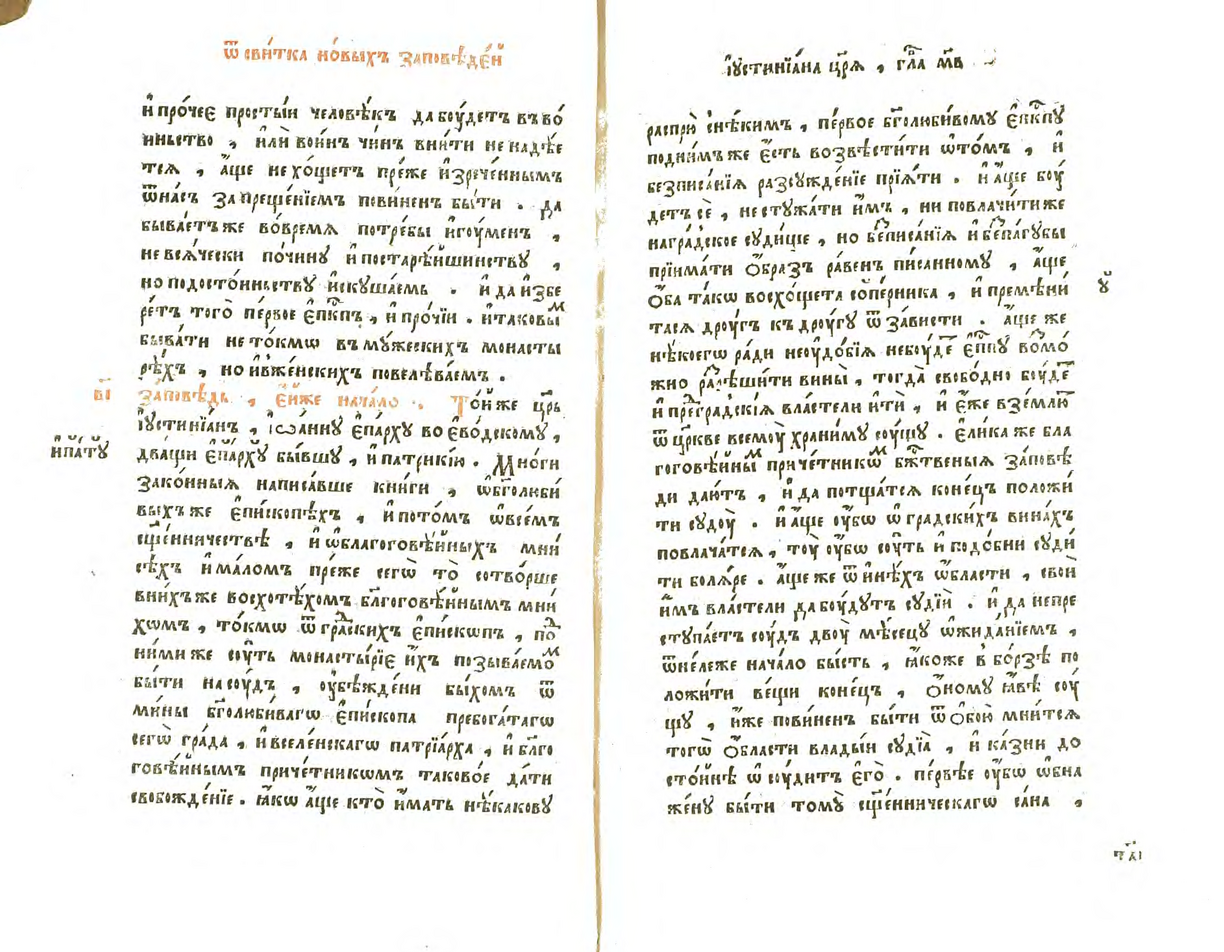 Ѿ сви́тка но́выхъ за́повѣде́й
и҆ про́чеє просты́и человѣ́къ да боу́детъ въ во́
иньство , и҆лѝ во́инъ чи́нъ вни́ти не надѣ́е
тсѧ , а҆́ще не хо́щетъ пре́же и҆зрече́ннымъ
ѿ на́съ запреще́нїемъ пови́ненъ бы́ти . да
быва́етъ же во́времѧ потре́бы и҆гоу́менъ ,
не всѧ́чески по чи́нꙋ и҆ по старѣ́йшинствꙋ ,
но по досто́иньствꙋ и҆скꙋша́емь . и҆ да и҆збе
ре́тъ того̀ пе́рвое є҆пⷭ҇кпъ , и҆ про́чїи . и҆ таковы́ⷨ
быва́ти не то́кмѡ въ мꙋ́жескихъ монасты
рѣ́хъ , но и҆ в же́нскихъ повелѣва́емъ .
в҃і за́повѣдь , є҆́йже нача́ло . То́й же цр҃ь
і҆ꙋстинїа́нъ , і҆ѡа́ннꙋ є҆па́рхꙋ во є҆во́дскомꙋ ,
и҆па́тꙋ
два́щи є҆па́рхꙋ бы́вшꙋ , и҆ патри́кїю . Мно́ги
зако́нныѧ написа́вше кни́ги , ѡ҆ бг҃олюби́
выхъ же є҆пи́скопѣхъ , и҆ пото́мъ ѡ҆ все́мъ
сщ҃е́нничествѣ , и҆ ѡ҆ благоговѣ́йныхъ мни́
сѣхъ и҆ ма́ломъ пре́же сегѡ̀ то̀ сотво́рше
в ни́хъ же восхотѣ́хомъ бл҃гоговѣ́йнымъ мни́
хѡмъ , то́кмѡ ѿ гра́дскихъ є҆пи́скопъ , поⷣ
ни́ми же сꙋ́ть монастырїе и҆́хъ позыва́емоⷨ
бы́ти на сꙋ́дъ , ᲂу҆бѣжде́ни бы́хомъ ѿ
ми́ны бг҃олюби́вагѡ є҆пи́скопа пребога́тагѡ
сегѡ̀ гра́да , и҆ вселе́нскагѡ патрїа́рха , и҆ бл҃го
говѣ́йнымъ приче́тникѡмъ таково́е да́ти
свобожде́нїе . ꙗ҆́кѡ а҆́ще кто̀ и҆́мать нѣ́каковꙋ
і҆ꙋстинїа́на цр҃ѧ , гла҃ м҃в
распрю̀ с нѣ́кимъ , пе́рвое бг҃олюби́вомꙋ є҆пⷭ҇кпꙋ
под ни́мъ же є҆́сть возвѣсти́ти ѡ҆ то́мъ , и҆
без писа́нїѧ разсꙋжде́нїе прїѧ́ти . и҆ а҆́ще боу́
детъ сѐ , не стꙋжа́ти и҆́мъ , ни повлачи́ти же
на гра́дское сꙋди́ще , но беⷥписа́нїѧ и҆ беⷥпа́гꙋбы
прїима́ти ѻ҆́бразъ ра́венъ пи́санномꙋ , а҆́ще
ѻ҆́ба та́кѡ восхо́щета сопе́рника , и҆ премѣни́
ꙋ҆
тасѧ дрꙋ́гъ къ дрꙋ́гꙋ ѿ за́висти . а҆́ще же
нѣ́коегѡ ра́ди неᲂудо́бїѧ не боу́деⷮ є҆пⷭ҇пꙋ воⷥмо́
жно раⷥрѣши́ти вины̀ , тогда̀ свобо́дно боу́деⷮ
и҆ преⷣгра́дскїѧ власте́ли и҆тѝ , и҆ є҆́же в зе́млю
ѿ цр҃кве всемꙋ̀ храни́мꙋ сꙋ́щꙋ . є҆ли́ка же бла
гоговѣ́йныⷨ приче́тникѡⷨ бж҃твеныѧ за́повѣ
ди даю́тъ , и҆ да потща́тсѧ коне́цъ положи́
ти сꙋдꙋ̀ . и҆ а҆́ще ᲂу҆́бѡ ѡ҆ гра́дскихъ вина́хъ
повлача́тсѧ , тоу̀ ᲂу҆́бѡ сꙋ́ть и҆ подо́бни сꙋди́
ти болѧ́ре . а҆́ще же ѿ и҆нѣ́хъ ѡ҆́бласти , свои̂
и҆́мъ власте́ли да боу́дꙋтъ сꙋдїи̂ . и҆ да не пре
стꙋпа́етъ сꙋ́дъ двоу̀ мѣ́сецꙋ ѡ҆жида́нїемъ ,
ѿне́лѣже нача́ло бы́сть , ꙗ҆́коже в бо́рзѣ по
ложи́ти ве́щи коне́цъ , ѻ҆́номꙋ ꙗ҆́вѣ сꙋ́
щꙋ , и҆́же пови́ненъ бы́ти ѿ ѻ҆бою̀ мни́тсѧ
тогѡ̀ ѻ҆́бласти влады́и сꙋдїа̀ , и҆ ка́зни до
сто́йнѣ ѡ҆ сꙋ́дитъ є҆го̀ . пе́рвѣе ᲂу҆́бѡ ѡ҆бна
же́нꙋ бы́ти томꙋ̀ сщ҃е́нническагѡ са́на ,